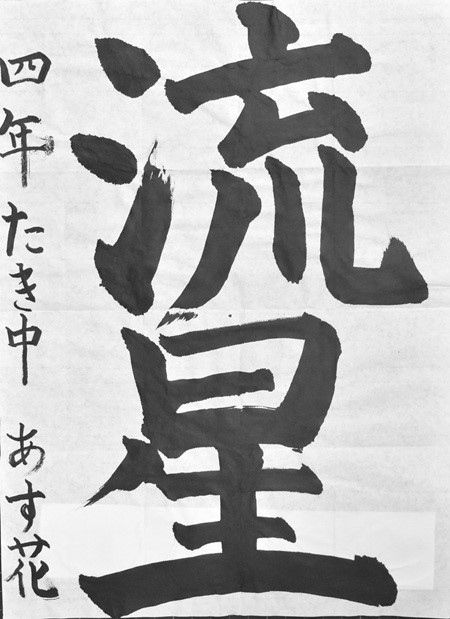 流星
四年 たき中 あす花